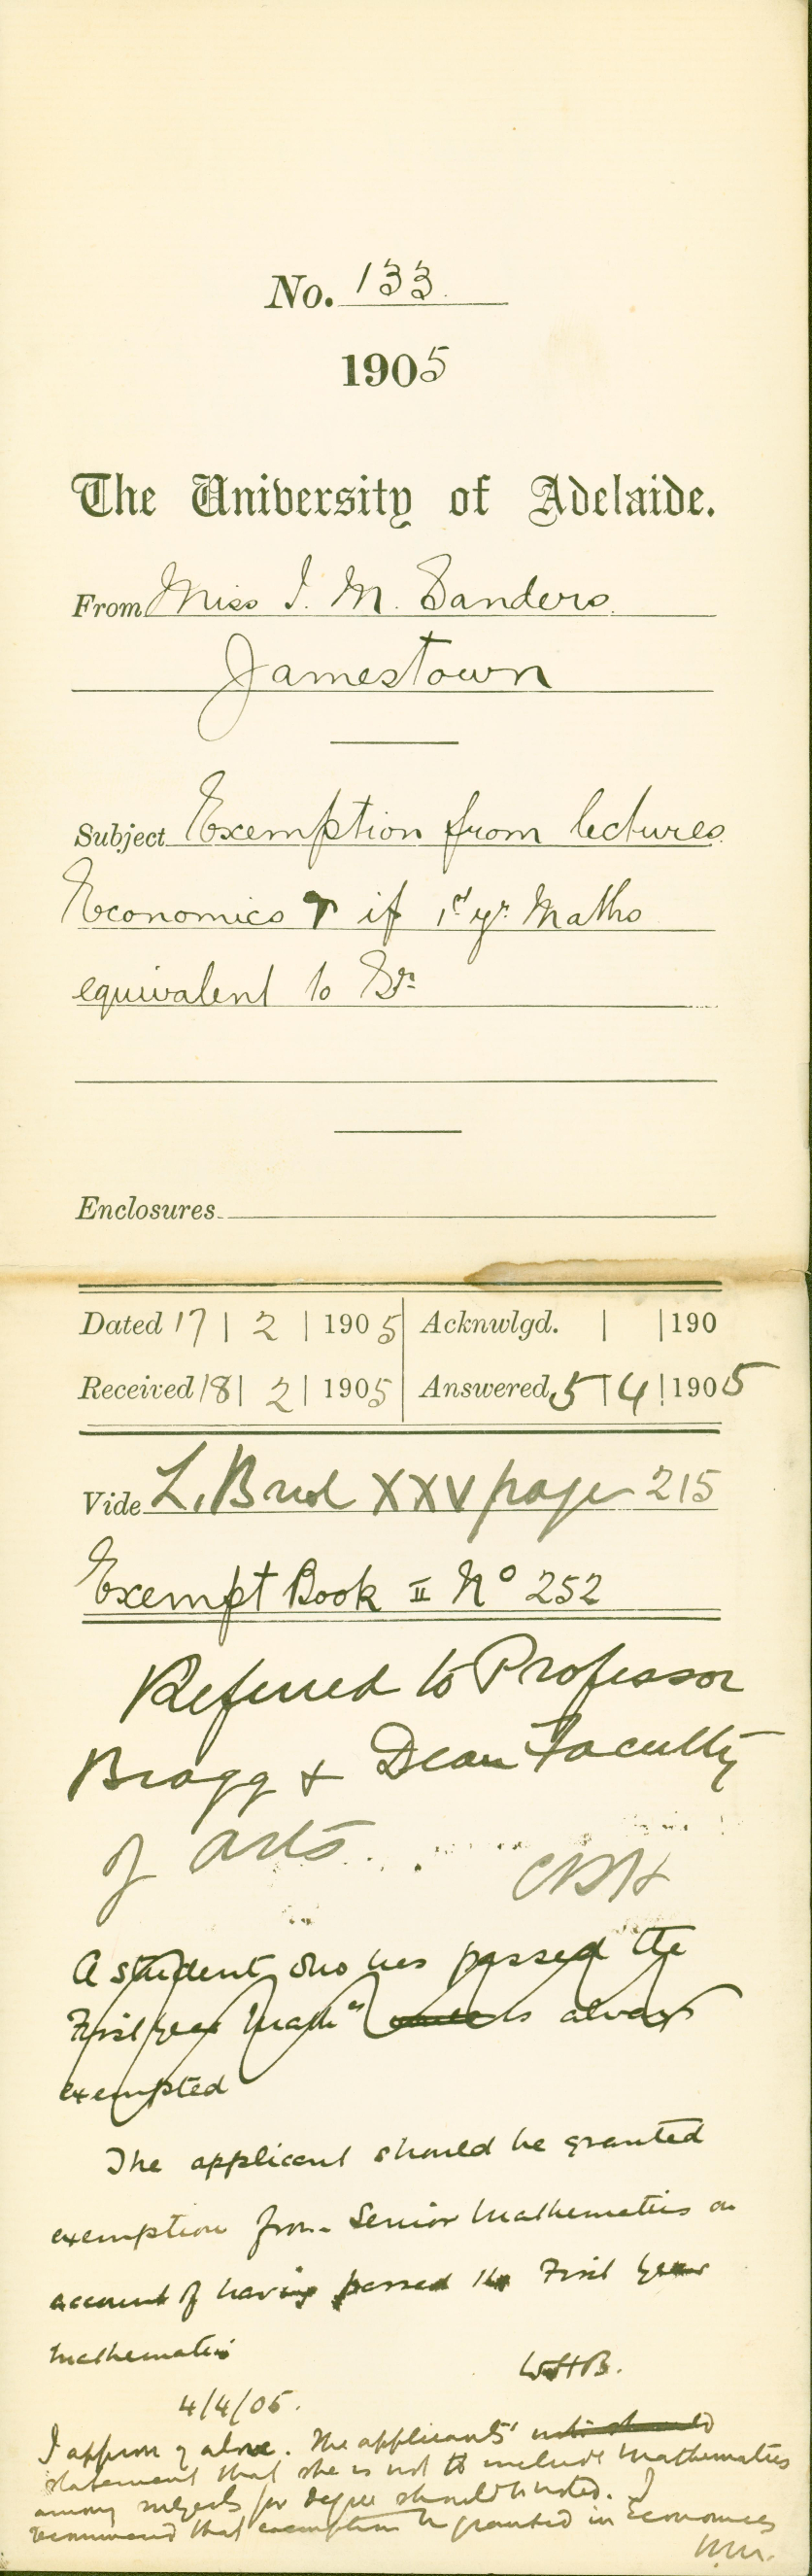 No. 133
1905
The University of Adelaide.
From Miss I. M. Sanders
Jamestown
Subject Exemption from lectures
Economics & if 1st yr. Maths
equivalent to Sr.
Enclosures
Dated 17 | 2 | 1905 Acknwlgd. | | 190
Received 18 | 2 | 1905 Answered 5 | 4 | 1905
Vide L. Book XXV page 215
Exempt Book II No 252
Referred to Professor
Bragg & Dean Faculty
of Arts.
A student who has passed the
First year Math is always
exempted
The applicant should be granted
exemption from Senior Mathematics on
account of having passed the First Year
Mathematics
WHB.
4/4/05.
I approve of above. The applicants' not should
statement that she is not to include Mathematics
among subjects for degree should be noted. I
recommend that exemption be granted in Economics